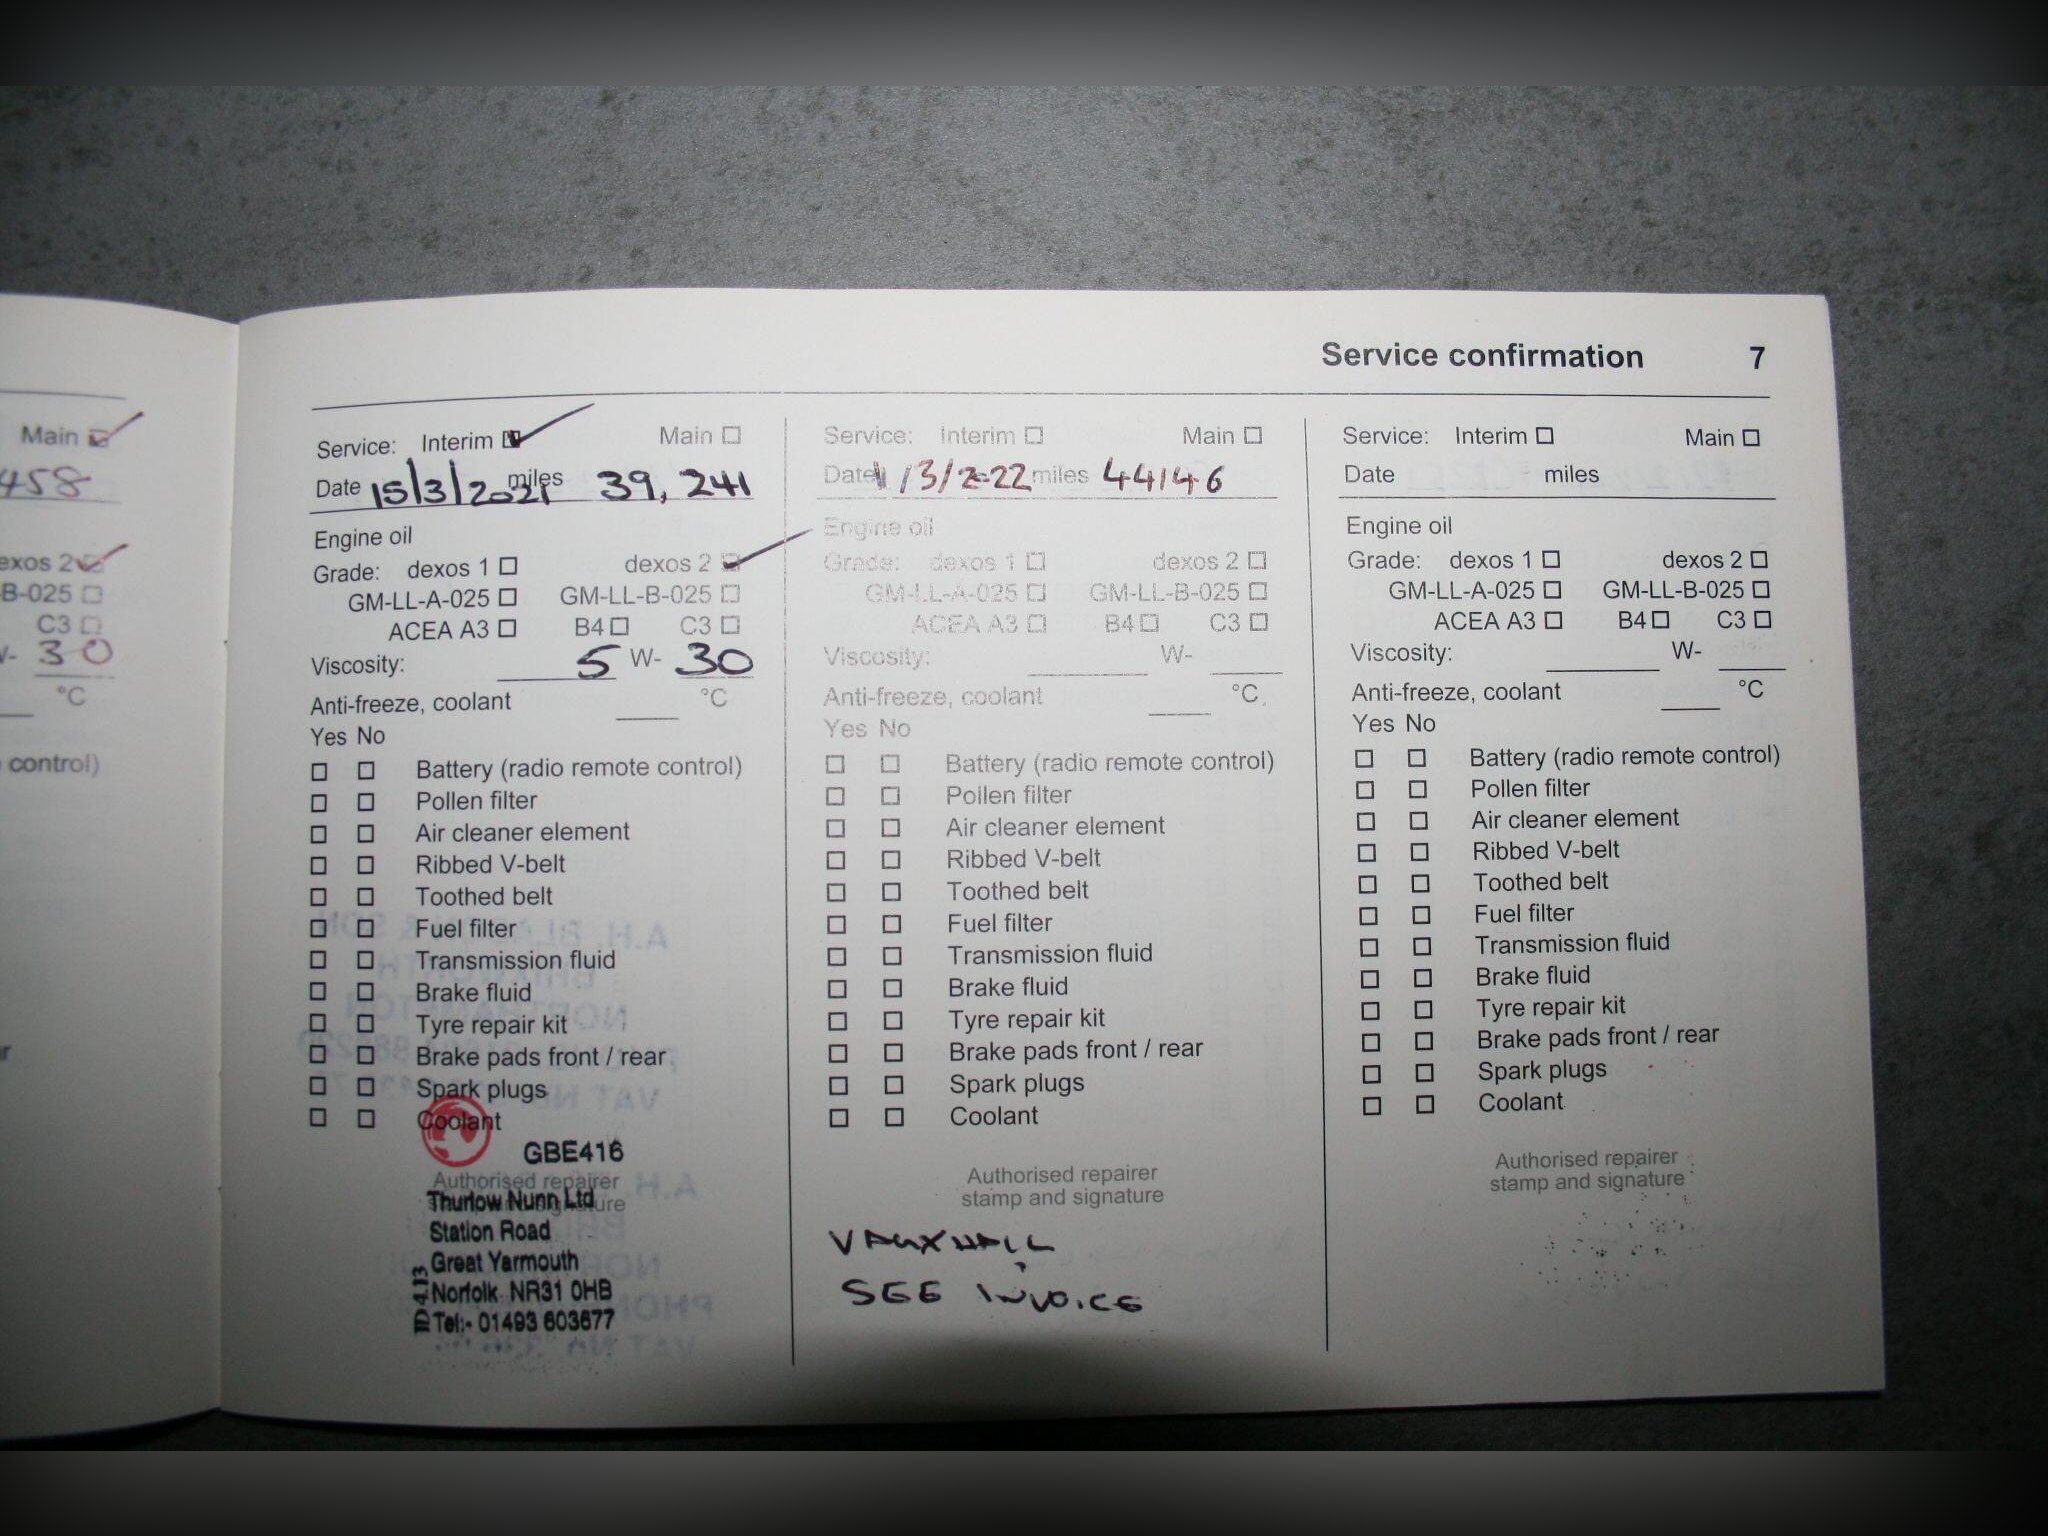 Service confirmation 7
Main
458
exos 2
-B-025
C3
W- 30
°C
control)
Service: Interim Main
Date 15/3/2021 miles 39,241
Engine oil
Grade: dexos 1 dexos 2
GM-LL-A-025 GM-LL-B-025
ACEA A3 B4 C3
Viscosity: 5 W- 30
Anti-freeze, coolant °C
Yes No
Battery (radio remote control)
Pollen filter
Air cleaner element
Ribbed V-belt
Toothed belt
Fuel filter
Transmission fluid
Brake fluid
Tyre repair kit
Brake pads front / rear
Spark plugs
Coolant
GBE416
Authorised repairer
stamp and signature
Thurlow Nunn Ltd
Station Road
Great Yarmouth
Norfolk NR31 0HB
Tel:- 01493 603677
Service: Interim Main
Date /3/2022 miles 44146
Engine oil
Grade: dexos 1 dexos 2
GM-LL-A-025 GM-LL-B-025
ACEA A3 B4 C3
Viscosity: W-
Anti-freeze, coolant °C
Yes No
Battery (radio remote control)
Pollen filter
Air cleaner element
Ribbed V-belt
Toothed belt
Fuel filter
Transmission fluid
Brake fluid
Tyre repair kit
Brake pads front / rear
Spark plugs
Coolant
Authorised repairer
stamp and signature
VAUXHALL
SEE INVOICE
Service: Interim Main
Date miles
Engine oil
Grade: dexos 1 dexos 2
GM-LL-A-025 GM-LL-B-025
ACEA A3 B4 C3
Viscosity: W-
Anti-freeze, coolant °C
Yes No
Battery (radio remote control)
Pollen filter
Air cleaner element
Ribbed V-belt
Toothed belt
Fuel filter
Transmission fluid
Brake fluid
Tyre repair kit
Brake pads front / rear
Spark plugs
Coolant
Authorised repairer
stamp and signature